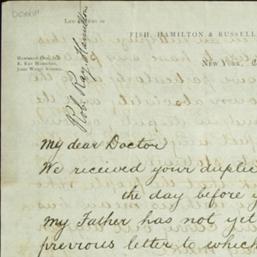 LAW OFFICES OF
FISH, HAMILTON & RUSSELL
HAMILTON FISH, JR.
R. RAY HAMILTON
NEW YORK,
Robt Ray Hamilton
My dear Doctor
We received your duplic
the day before y
my Father has not yet
previous letter to which